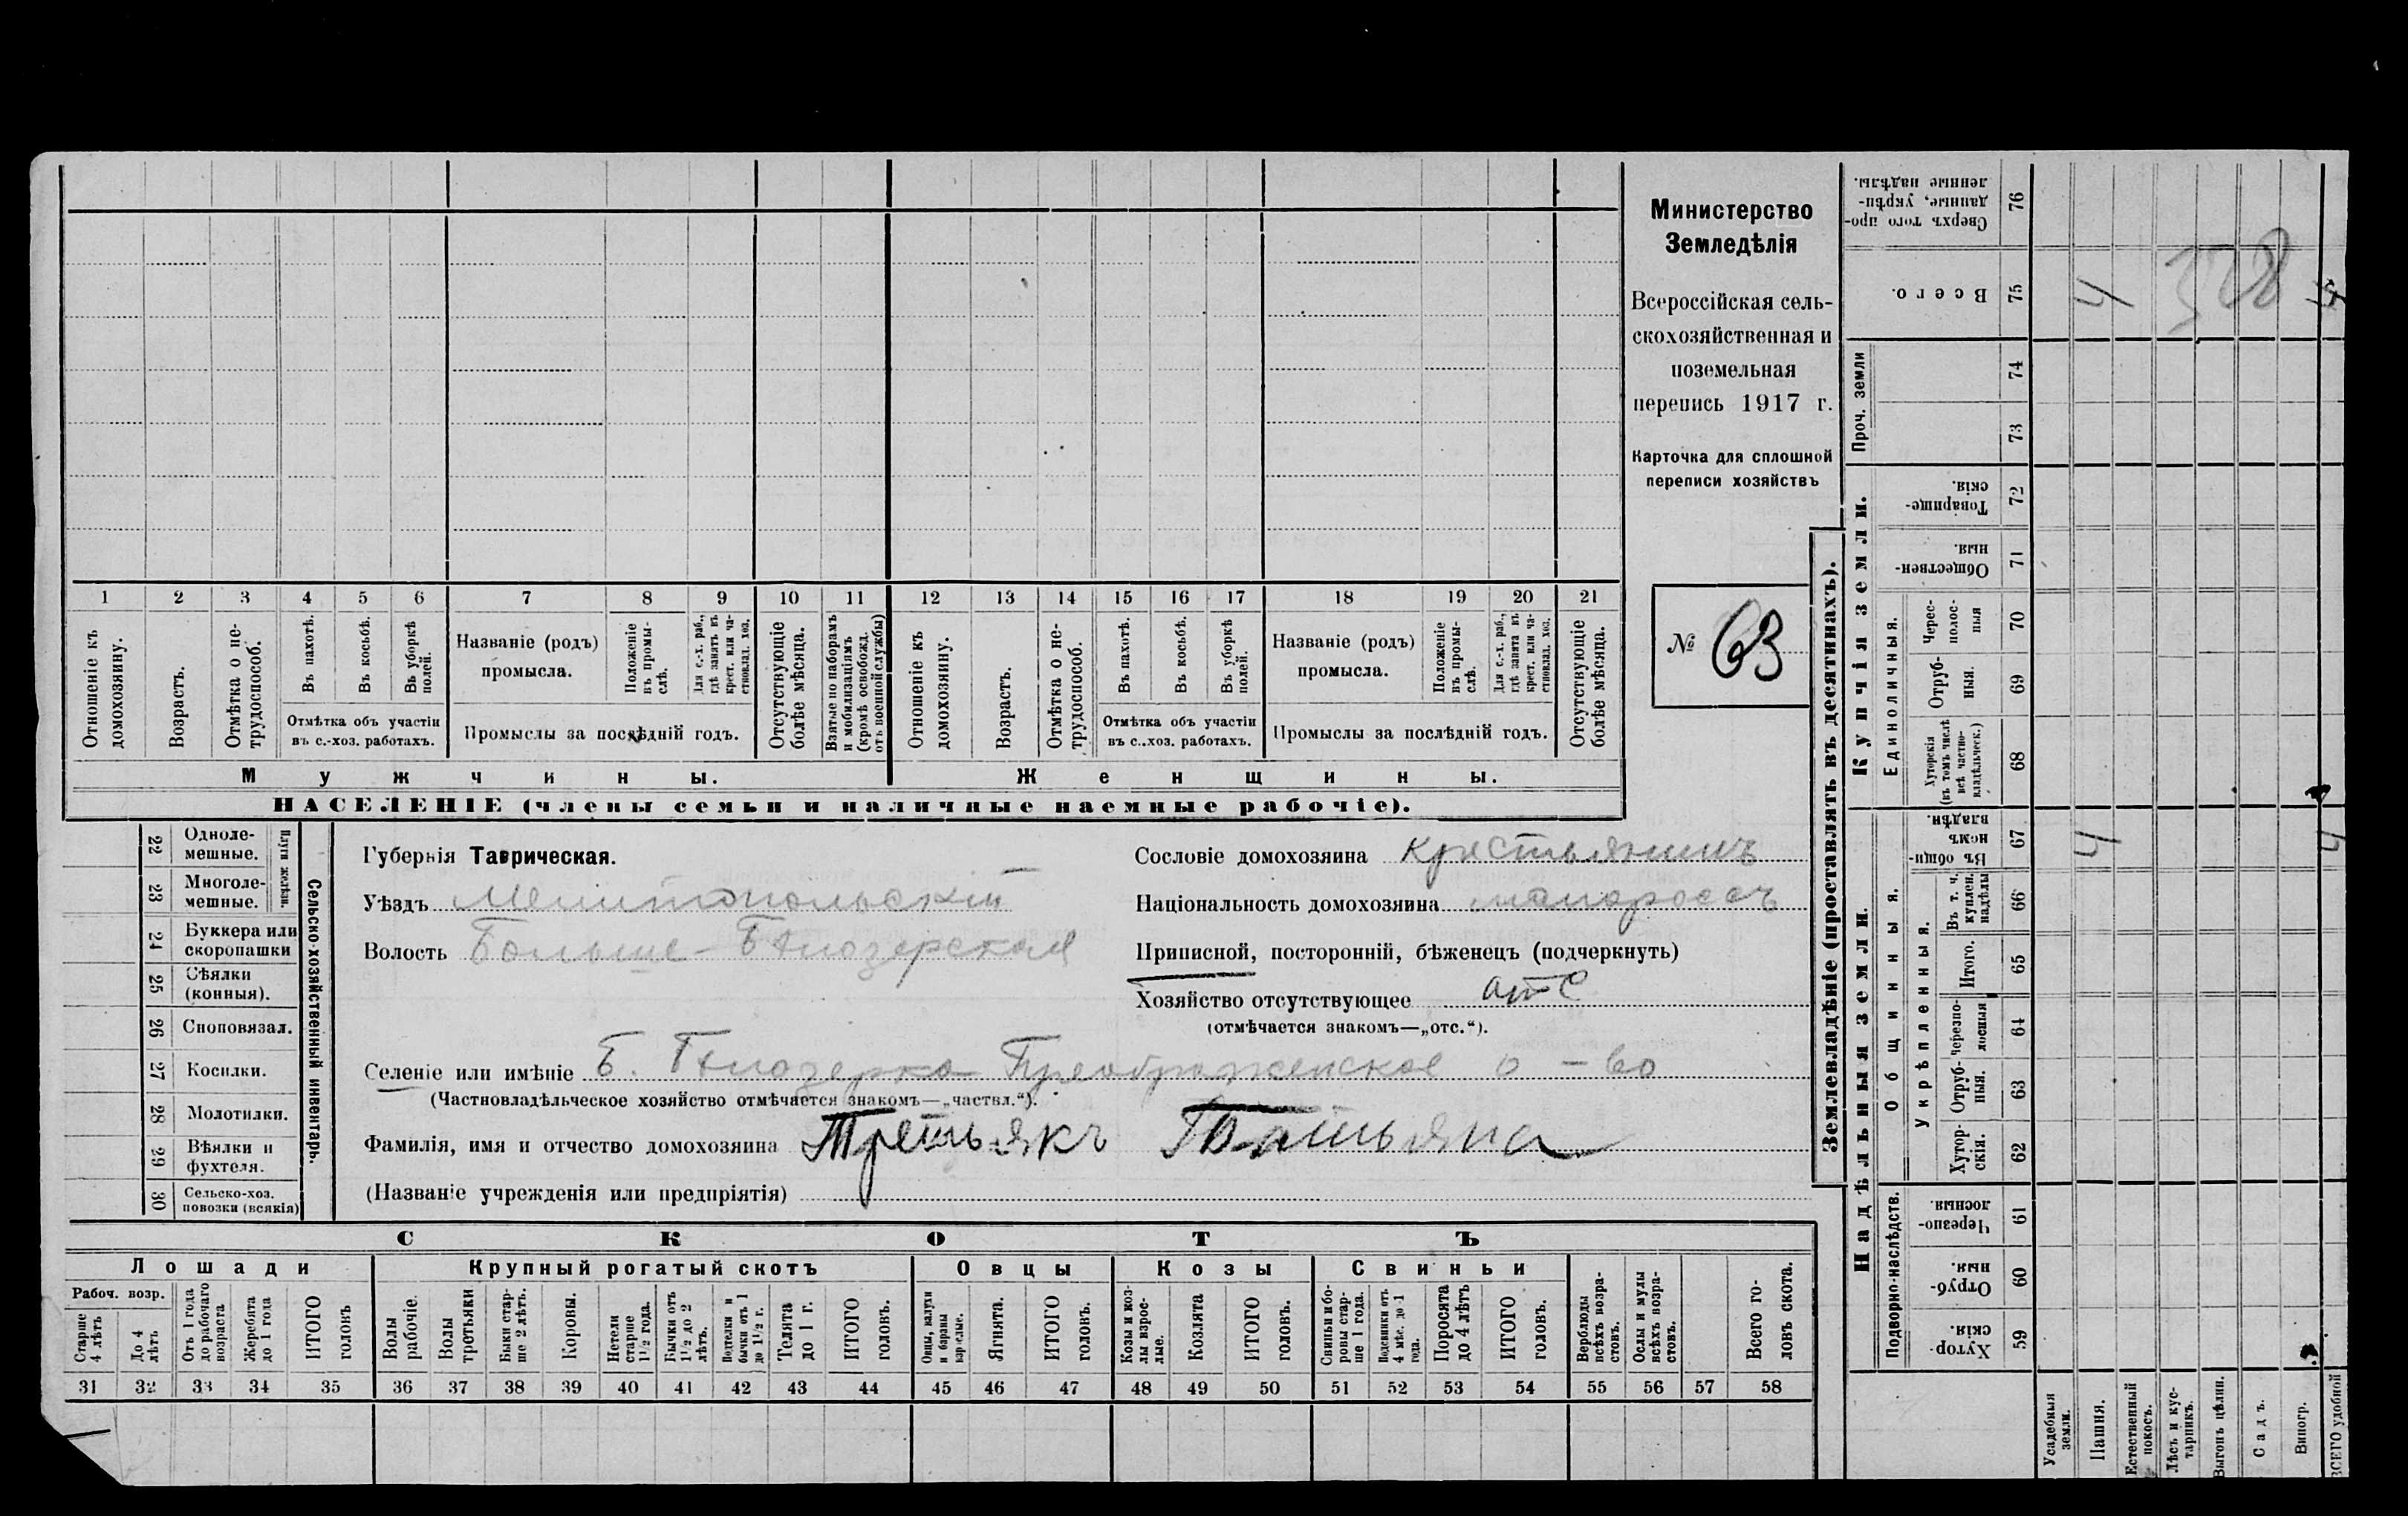 1 2 3 4 5 6 7 8 9 10 11 12 13 14 15 16 17 18 19 20 21
Отношеніе къ домохозяину.
Возрастъ.
Отмѣтка о не-
трудоспособ.
Въ пахотѣ.
Въ косьбѣ.
Въ уборкѣ
полей.
Отмѣтка объ участіи
въ с.-хоз. работахъ.
Названіе (родъ)
промысла.
Положеніе
въ промы-
слѣ.
Для с.-х. раб.,
гдѣ занятъ въ
крест. или ча-
стновлад. хоз.
Промыслы за послѣдній годъ.
Отсутствующіе
болѣе мѣсяца.
Взятые по наборамъ
и мобилизаціямъ
(кромѣ освобожд.
отъ военной службы)
Отношеніе къ
домохозяину.
Возрастъ.
Отмѣтка о не-
трудоспособ.
Въ пахотѣ.
Въ косьбѣ.
Въ уборкѣ
полей.
Отмѣтка объ участіи
въ с.-хоз. работахъ.
Названіе (родъ)
промысла.
Положеніе
въ промы-
слѣ.
Для с.-х. раб.,
гдѣ занята въ
крест. или ча-
стновлад. хоз.
Промыслы за послѣдній годъ.
Отсутствующіе
болѣе мѣсяца.
Мужчины.
Женщины.
НАСЕЛЕНІЕ (члены семьи и наличные наемные рабочіе).
Министерство
Земледѣлія
Всероссійская сель-
скохозяйственная и
поземельная
перепись 1917 г.
Карточка для сплошной
переписи хозяйствъ
№ 63
22 Одноле-
мешные.
23 Многоле-
мешные.
Плуги желѣзн.
24 Буккера или
скоропашки
25 Сѣялки
(конныя).
26 Сноповязал.
27 Косилки.
28 Молотилки.
29 Вѣялки и
фухтеля.
30 Сельско-хоз.
повозки (всякія)
Сельско-хозяйственный инвентарь.
Губернія Таврическая.
Уѣздъ Мелитопольскій
Волость Больше-Бѣлозерская
Сословіе домохозяина крестьянинъ
Національность домохозяина малороссъ
Приписной, посторонній, бѣженецъ (подчеркнуть)
Хозяйство отсутствующее отс
(отмѣчается знакомъ—„отс.“).
Селеніе или имѣніе Б. Бѣлозерка Преображенское о-во
(Частновладѣльческое хозяйство отмѣчается знакомъ—„частвл.“).
Фамилія, имя и отчество домохозяина Третьякъ Татьяна
(Названіе учрежденія или предпріятія)
СКОТЪ
Лошади
Рабоч. возр.
Старше
4 лѣтъ
До 4
лѣтъ
Отъ 1 года
до рабочаго
возраста
Жеребята
до 1 года
ИТОГО
головъ
Крупный рогатый скотъ
Волы
рабочіе.
Волы
третьяки
Быки стар-
ше 2 лѣтъ.
Коровы.
Нетели
старше
1½ года.
Бычки отъ
1½ до 2
лѣтъ.
Подтелки и
бычки отъ 1
до 1½ г.
Телята
до 1 г.
ИТОГО
головъ.
Овцы
Овцы, валухи
и бараны
взрослые.
Ягнята.
ИТОГО
головъ.
Козы
Козы и коз-
лы взрос-
лые.
Козлята
ИТОГО
головъ.
Свиньи
Свиньи и бо-
ровы стар-
ше 1 года.
Подсвинки отъ
4 мѣс. до 1
года.
Поросята
до 4 лѣтъ
ИТОГО
головъ.
Верблюды
всѣхъ возра-
стовъ.
Ослы и мулы
всѣхъ возра-
стовъ.
Всего го-
ловъ скота.
31 32 33 34 35 36 37 38 39 40 41 42 43 44 45 46 47 48 49 50 51 52 53 54 55 56 57 58
Землевладѣніе (проставлять въ десятинахъ).
Надѣльныя земли.
Купчія земли.
Проч. земли
Сверхъ того про-
данные, укрѣп-
ленные надѣлы.
76
Всего.
75 4 4
328
74
73
Товарище-
скія.
72
Обществен-
ныя.
71
Единоличныя.
Черес-
полос-
ныя
70
Отруб-
ныя.
69
Хуторскія
(въ томъ числѣ
всѣ частно-
владѣльческ.)
68
Общинныя.
Въ общи-
номъ
владѣн.
67 4 4
Укрѣпленныя.
Въ т. ч.
куплен.
надѣлы
66
Итого.
65
Черезпо-
лосныя
64
Отруб-
ныя.
63
Хутор-
скія.
62
Подворно-наслѣдств.
Черезпо-
лосныя.
61
Отруб-
ныя.
60
Хутор-
скія.
59
Усадебныя
земли.
Пашня.
Естественный
покосъ.
Лѣсъ и кус-
тарникъ.
Выгонъ цѣлин.
Садъ.
Виногр.
ВСЕГО удобной